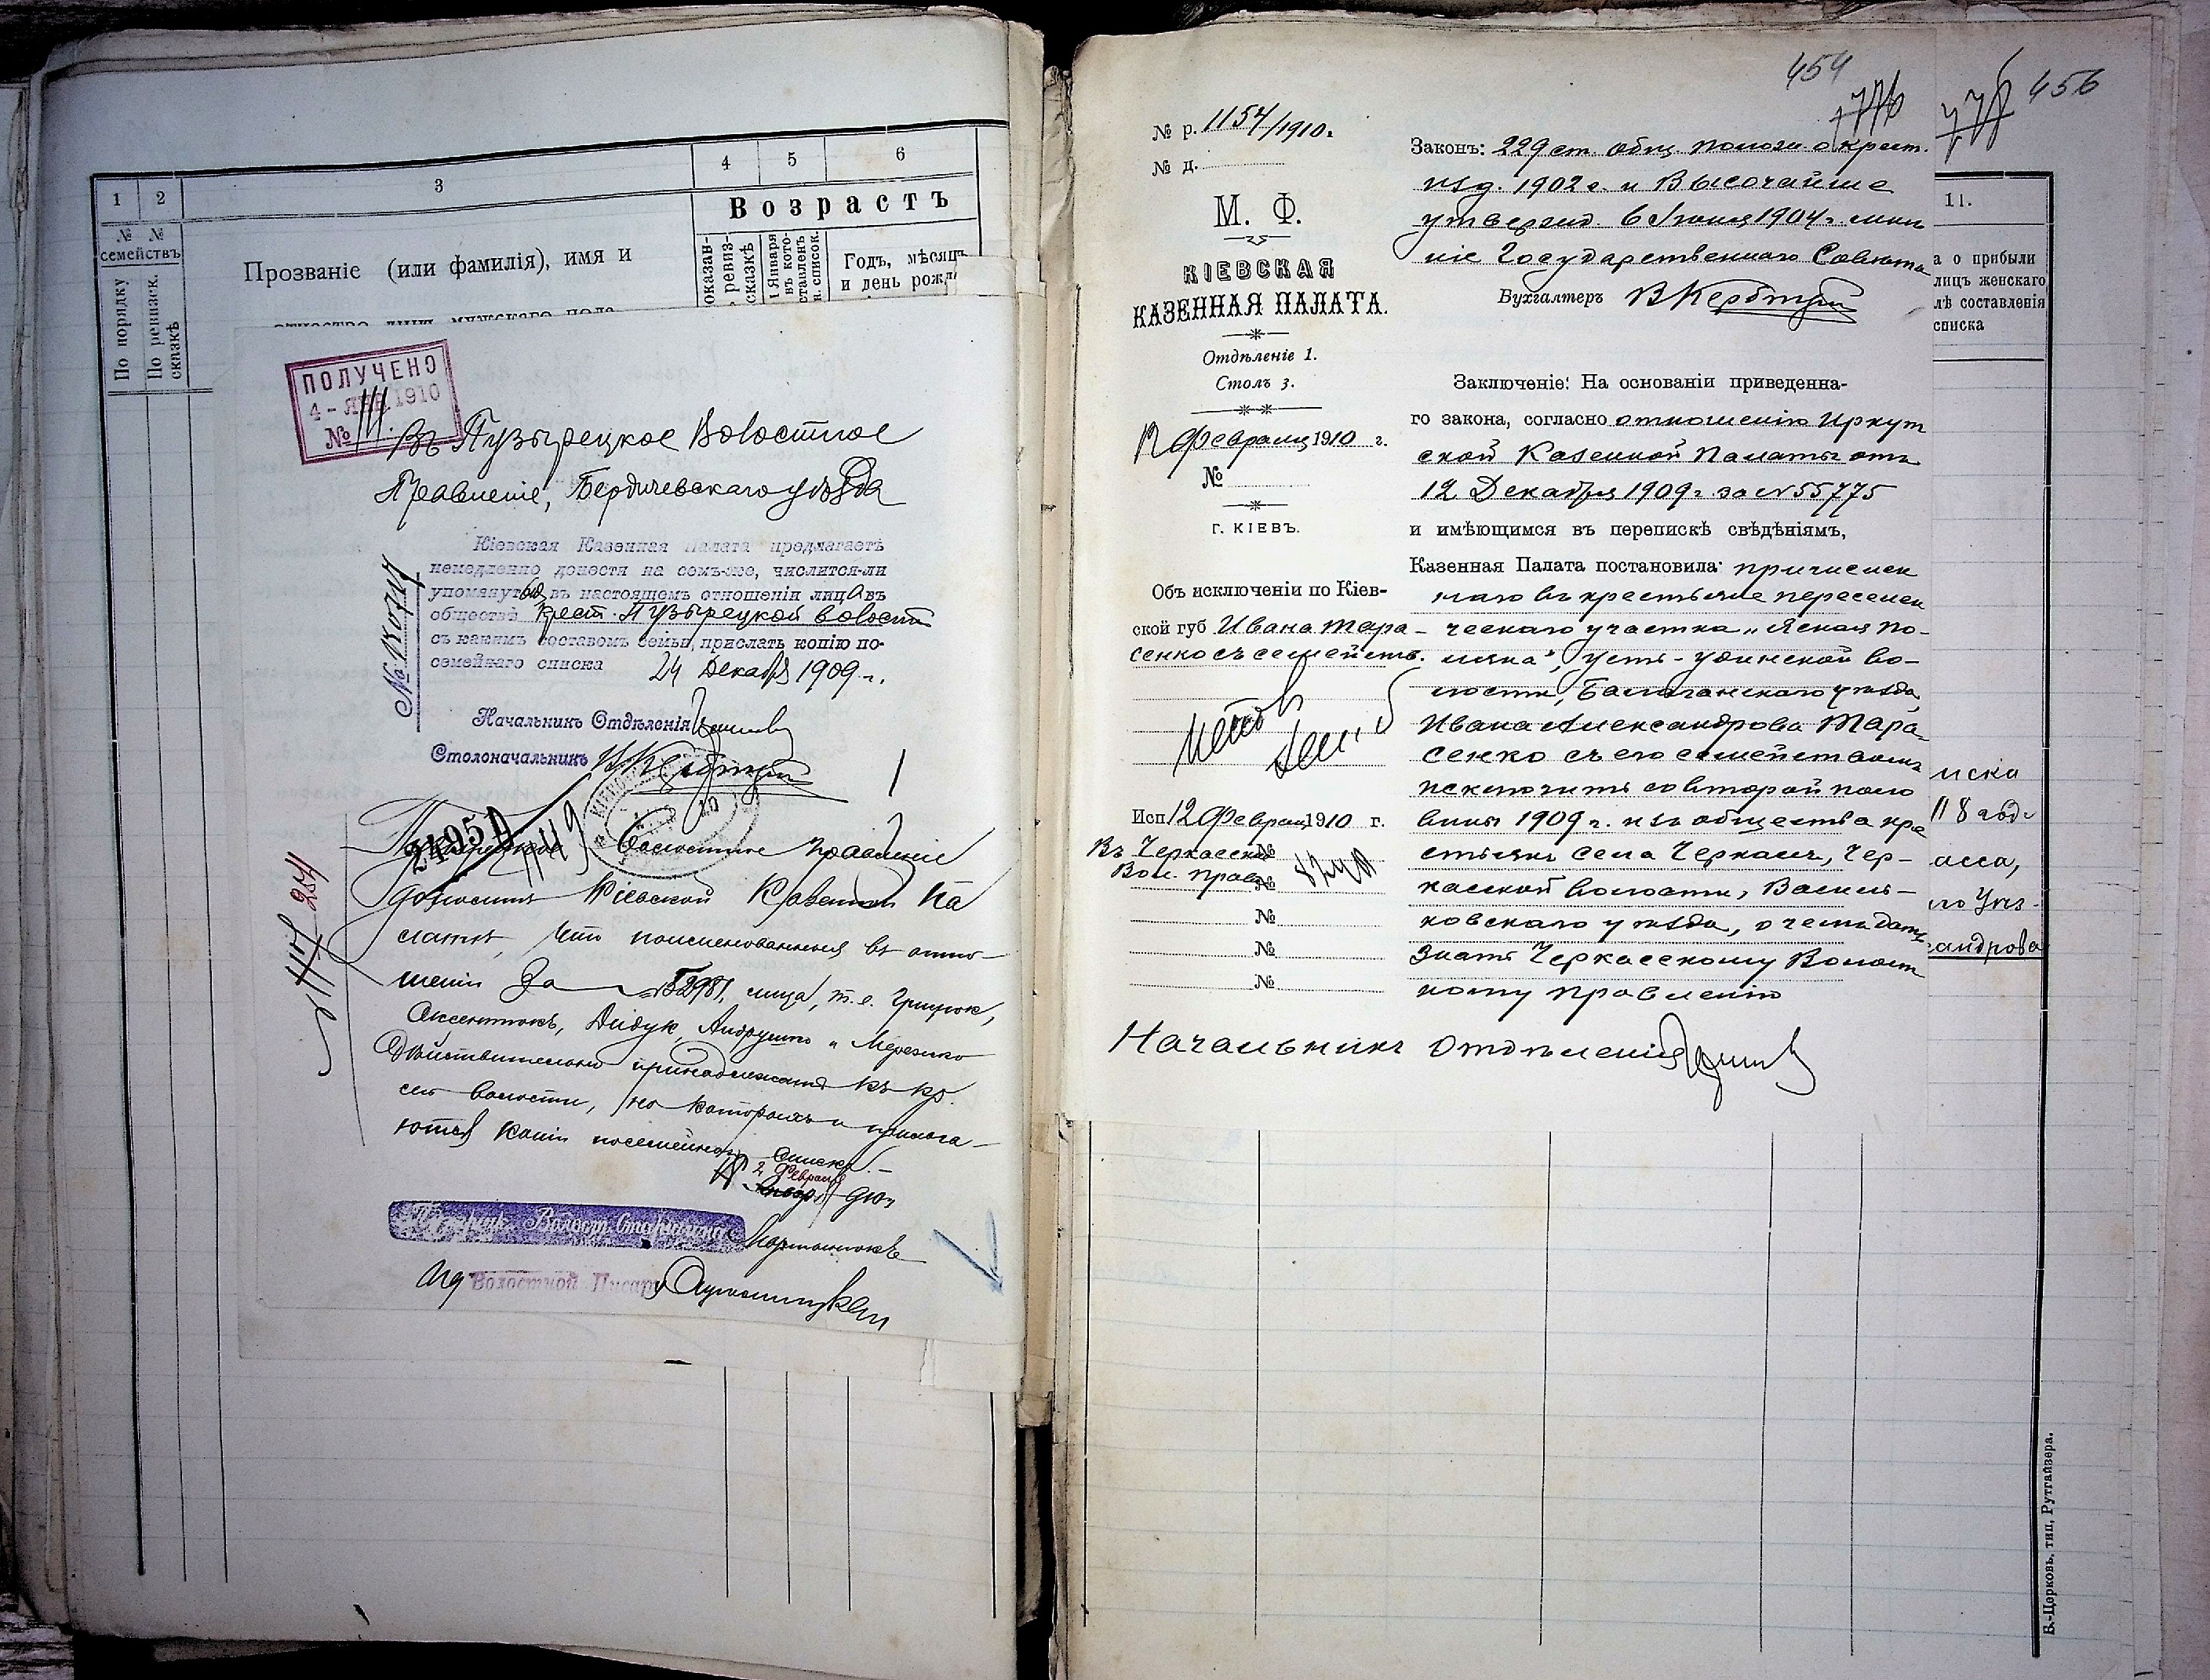 1 2 3 4 5 6
№ № семействъ
По порядку
По ревизск. сказкѣ
Прозваніе (или фамилія), имя и
отчество лицъ мужскаго пола
Возрастъ
Годъ, мѣсяцъ
и день рожд
ПОЛУЧЕНО
4 - ЯНВ. 1910
№ 111.
Въ Пузырецкое Волостное
Правленіе, Бердичевскаго уѣзда
Кіевская Казенная Палата предлагаетъ
немедленно донести на семъ-же, числится-ли
упомянут въ настоящемъ отношеніи лица въ
обществѣ крест. Пузырецкой волости
съ какимъ составомъ семьи, прислать копію по-
семейнаго списка 24 Декабря 1909 г.
Начальникъ Отдѣленія
Столоначальникъ В Кербтуръ
24950
Волостное правленіе
доноситъ Кіевской Казенной Па
латѣ, что поименованныя въ отно-
шеніи за № 52981, лица, т.е. Грицюк,
Аксентюкъ, Дидук, Андрушко и Мережко
дѣйствительно принадлежатъ къ кр.
сей волости, на которыхъ и прилага-
ются копіи посемейнаго списка. -
2 Февраля
Января 910 г.
Волост. Старшина Мартынюкъ
Ид Волостной Писарь
454
776
778 456
№ р. 1154/1910 г.
№ д.
М. Ф.
КІЕВСКАЯ
КАЗЕННАЯ ПАЛАТА.
Отдѣленіе 1.
Столъ 3.
12 Февраля 1910 г.
№
г. КІЕВЪ.
Объ исключеніи по Кіев-
ской губ Ивана Тара-
сенко съ семейств.
Исп. 12 Февраля 1910 г.
Въ Черкасское №
Вол. Правл. №
№
№
№
Законъ: 229 ст. общ. полож о крест.
изд. 1902 г. и Высочайше
утвержд. 6 Іюня 1904 г. мнѣ
ніе Государственнаго Совѣта
Бухгалтеръ В Кербтуръ
Заключеніе: На основаніи приведенна-
го закона, согласно отношенію Иркут
ской Казенной Палаты отъ
12 Декабря 1909 г. за № 55775
и имѣющимся въ перепискѣ свѣдѣніямъ,
Казенная Палата постановила: причислен
наго въ крестьяне переселен
ческаго участка „Ясная По-
ляна“, Усть-Удинской во-
лости, Балаганскаго уѣзда,
Ивана Александрова Тара-
сенко съ его семействомъ
исключить со второй поло
вины 1909 г. изъ общества кре
стьянъ села Черкасъ, Чер-
касской волости, Василь-
ковскаго уѣзда, о чемъ дать
знать Черкасскому Волост
ному правленію
Начальникъ Отдѣленія
11.
а о прибыли
лицъ женскаго
лѣ составленія
списка
иска
асса,
го Уѣз-
сандрова
Б.-Церковь. тип. Рутгайзера.